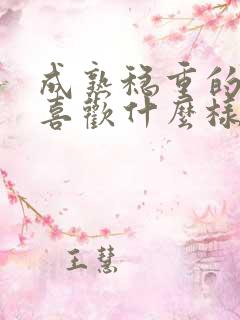 成熟稳重的
喜歡什麼樣
王慧